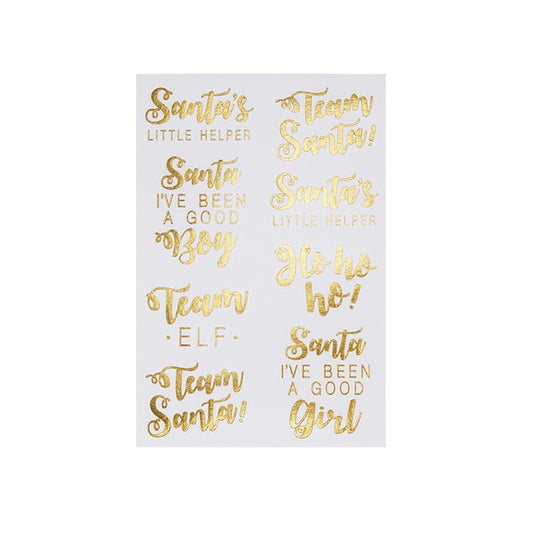 Santa's
LITTLE HELPER
Santa
I'VE BEEN
A GOOD
Boy
Team
·ELF·
Team
Santa!
Team
Santa!
Santa's
LITTLE HELPER
Ho ho
ho!
Santa
I'VE BEEN
A GOOD
Girl